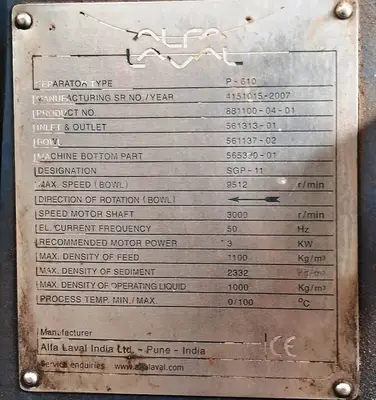 ALFA
LAVAL
SEPARATOR TYPE P - 610
MANUFACTURING SR NO / YEAR 4151015-2007
PRODUCT NO. 881100-04-01
INLET & OUTLET 561313-01
BOWL 561137-02
MACHINE BOTTOM PART
DESIGNATION SGP - 11
MAX. SPEED (BOWL) 9512 r/min
DIRECTION OF ROTATION (BOWL) ←
SPEED MOTOR SHAFT 3000 r/min
EL. CURRENT FREQUENCY 50 Hz
RECOMMENDED MOTOR POWER 3 KW
MAX. DENSITY OF FEED 1100 Kg/m³
MAX. DENSITY OF SEDIMENT 2332 Kg/m³
MAX. DENSITY OF OPERATING LIQUID 1000 Kg/m³
PROCESS TEMP. MIN./ MAX. 0/100 °C
Manufacturer
Alfa Laval India Ltd. - Pune - India
CE
Service enquiries www.alfalaval.com